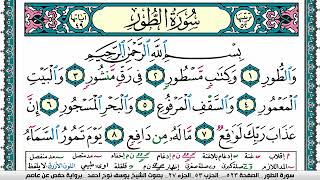 سُورَةُ الطُّورِ
بِسْمِ اللَّهِ الرَّحْمَٰنِ الرَّحِيمِ
وَالطُّورِ ١ وَكِتَابٍ مَسْطُورٍ ٢ فِي رَقٍّ مَنْشُورٍ ٣ وَالْبَيْتِ
الْمَعْمُورِ ٤ وَالسَّقْفِ الْمَرْفُوعِ ٥ وَالْبَحْرِ الْمَسْجُورِ ٦ إِنَّ
عَذَابَ رَبِّكَ لَوَاقِعٌ ٧ مَا لَهُ مِنْ دَافِعٍ ٨ يَوْمَ تَمُورُ السَّمَاءُ
سورة الطور - الصفحة ٥٢٣ - الحزب ٥٣ - الجزء ٢٧ - بصوت الشيخ يوسف نوح أحمد - برواية حفص عن عاصم